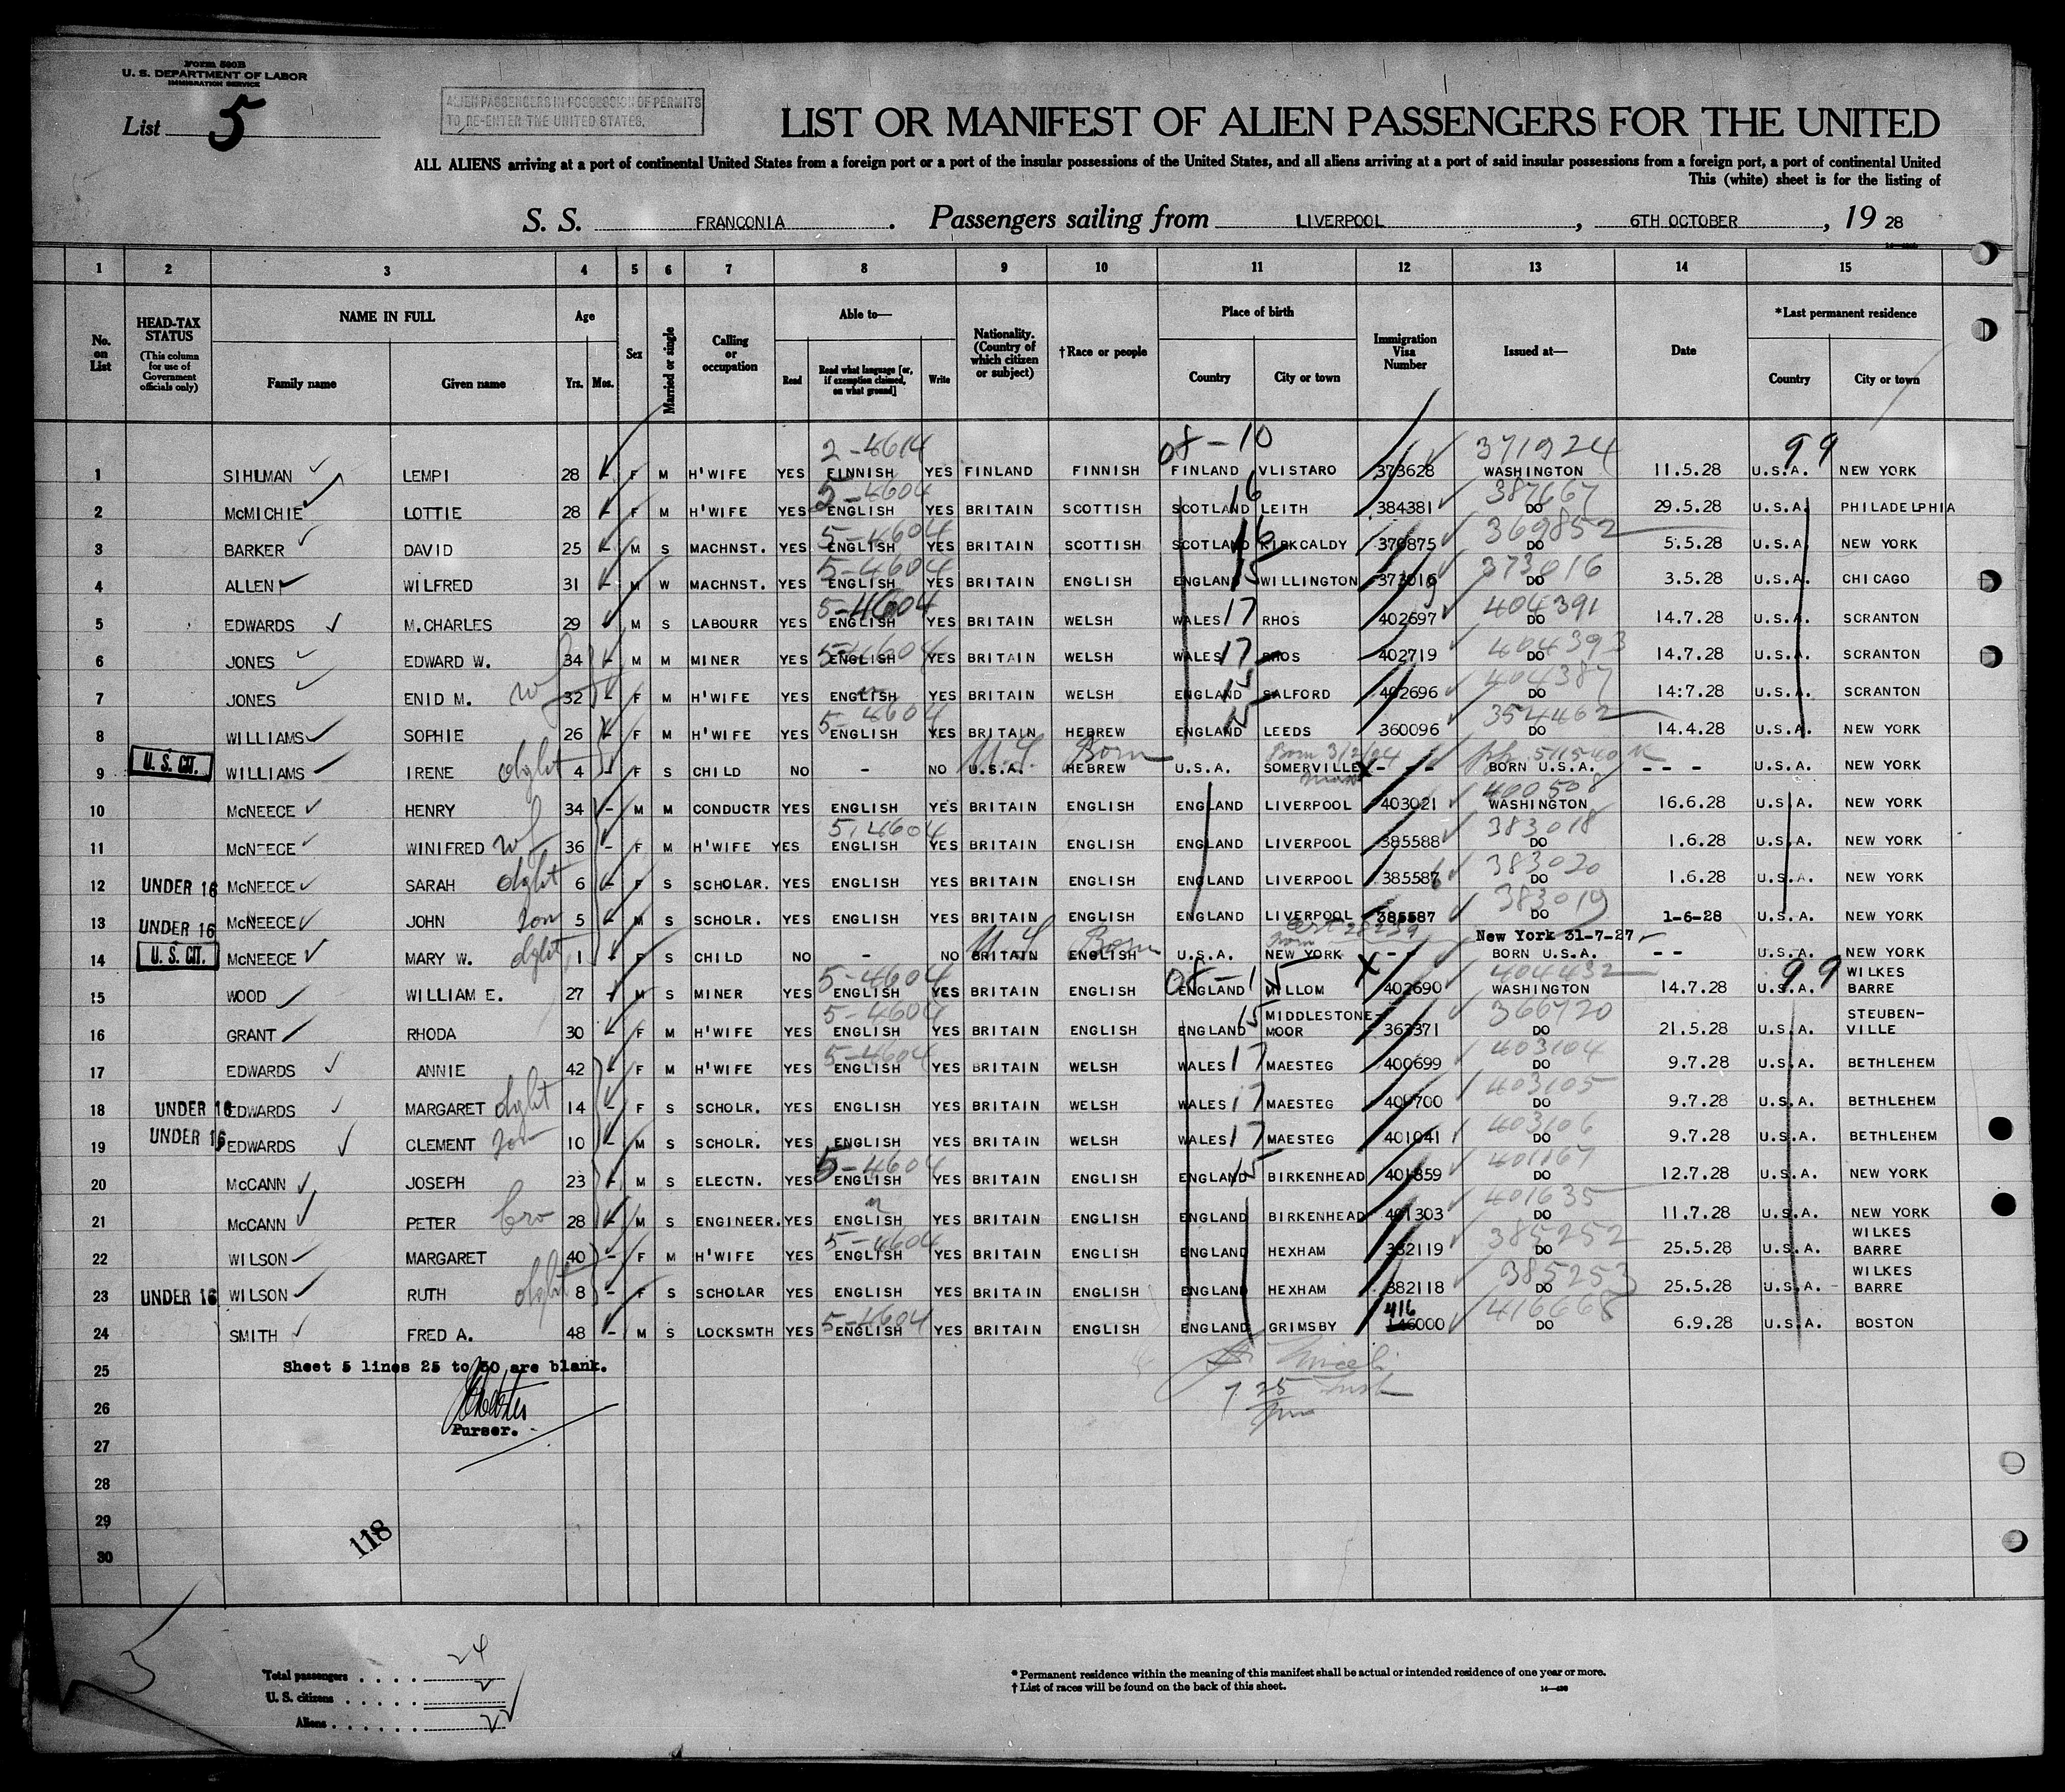 Form 500B
U. S. DEPARTMENT OF LABOR
IMMIGRATION SERVICE
List 5
ALIEN PASSENGERS IN POSSESSION OF PERMITS
TO RE-ENTER THE UNITED STATES.
LIST OR MANIFEST OF ALIEN PASSENGERS FOR THE UNITED
ALL ALIENS arriving at a port of continental United States from a foreign port or a port of the insular possessions of the United States, and all aliens arriving at a port of said insular possessions from a foreign port, a port of continental United
This (white) sheet is for the listing of
S. S. FRANCONIA. Passengers sailing from LIVERPOOL, 6TH OCTOBER, 19 28
1 2 3 4 5 6 7 8 9 10 11 12 13 14 15
No. on List
HEAD-TAX STATUS (This column for use of Government officials only)
NAME IN FULL Family name Given name
Age Yrs. Mos.
Sex
Married or single
Calling or occupation
Able to— Read Read what language [or, if exemption claimed, on what ground] Write
Nationality. (Country of which citizen or subject)
†Race or people
Place of birth Country City or town
Immigration Visa Number
Issued at—
Date
*Last permanent residence Country City or town
2-4614 08-10 371924 99
1 SIHLMAN LEMPI 28 - F M H'WIFE YES FINNISH YES FINLAND FINNISH FINLAND VLISTARO 373628 WASHINGTON 11.5.28 U.S.A. NEW YORK
5-4604 16 387667
2 McMICHIE LOTTIE 28 - F M H'WIFE YES ENGLISH YES BRITAIN SCOTTISH SCOTLAND LEITH 384381 DO 29.5.28 U.S.A. PHILADELPHIA
5-4604 16 369852
3 BARKER DAVID 25 - M S MACHNST. YES ENGLISH YES BRITAIN SCOTTISH SCOTLAND KIRKCALDY 370875 DO 5.5.28 U.S.A. NEW YORK
5-4604 15 373016
4 ALLEN WILFRED 31 - M W MACHNST. YES ENGLISH YES BRITAIN ENGLISH ENGLAND WILLINGTON 373016 DO 3.5.28 U.S.A. CHICAGO
5-4604 17 404391
5 EDWARDS M.CHARLES 29 - M S LABOURR YES ENGLISH YES BRITAIN WELSH WALES RHOS 402697 DO 14.7.28 U.S.A. SCRANTON
5-4604 17 404393
6 JONES EDWARD W. 34 - M M MINER YES ENGLISH YES BRITAIN WELSH WALES RHOS 402719 DO 14.7.28 U.S.A. SCRANTON
15 404387
7 JONES ENID M. wf 32 - F M H'WIFE YES ENGLISH YES BRITAIN WELSH ENGLAND SALFORD 402696 DO 14:7.28 U.S.A. SCRANTON
5-4604 15 354462
8 WILLIAMS SOPHIE 26 - F M H'WIFE YES ENGLISH YES BRITAIN HEBREW ENGLAND LEEDS 360096 DO 14.4.28 U.S.A. NEW YORK
U.S. Born Born 3/2/24 pp. 511540
9 U. S. CIT. WILLIAMS IRENE dght 4 - F S CHILD NO - NO U.S.A. HEBREW U.S.A. SOMERVILLE Mass X - - - BORN U.S.A. - - - U.S.A. NEW YORK
400508
10 McNEECE HENRY 34 - M M CONDUCTR YES ENGLISH YES BRITAIN ENGLISH ENGLAND LIVERPOOL 403021 WASHINGTON 16.6.28 U.S.A. NEW YORK
5.4604 383018
11 McNEECE WINIFRED wf 36 - F M H'WIFE YES ENGLISH YES BRITAIN ENGLISH ENGLAND LIVERPOOL 385588 DO 1.6.28 U.S.A. NEW YORK
383020
12 UNDER 16 McNEECE SARAH dght 6 - F S SCHOLAR. YES ENGLISH YES BRITAIN ENGLISH ENGLAND LIVERPOOL 385586 DO 1.6.28 U.S.A. NEW YORK
383019
13 UNDER 16 McNEECE JOHN son 5 - M S SCHOLR. YES ENGLISH YES BRITAIN ENGLISH ENGLAND LIVERPOOL 385587 DO 1-6-28 U.S.A. NEW YORK
U.S. Born cert 28239 Born New York 31-7-27
14 U. S. CIT. McNEECE MARY W. dght 1 - F S CHILD NO - NO BRITAIN ENGLISH U.S.A. NEW YORK X - - BORN U.S.A. - - U.S.A. NEW YORK
5-4604 08-15 404432 99
15 WOOD WILLIAM E. 27 - M S MINER YES ENGLISH YES BRITAIN ENGLISH ENGLAND MILLOM 402690 WASHINGTON 14.7.28 U.S.A. WILKES BARRE
5-4604 15 366720
16 GRANT RHODA 30 - F M H'WIFE YES ENGLISH YES BRITAIN ENGLISH ENGLAND MIDDLESTONE-MOOR 363371 DO 21.5.28 U.S.A. STEUBEN-VILLE
5-4604 17 403104
17 EDWARDS ANNIE 42 - F M H'WIFE YES ENGLISH YES BRITAIN WELSH WALES MAESTEG 400699 DO 9.7.28 U.S.A. BETHLEHEM
17 403105
18 UNDER 16 EDWARDS MARGARET dght 14 - F S SCHOLR. YES ENGLISH YES BRITAIN WELSH WALES MAESTEG 400700 DO 9.7.28 U.S.A. BETHLEHEM
17 403106
19 UNDER 16 EDWARDS CLEMENT son 10 - M S SCHOLR. YES ENGLISH YES BRITAIN WELSH WALES MAESTEG 401041 DO 9.7.28 U.S.A. BETHLEHEM
5-4604 15 401167
20 McCANN JOSEPH 23 - M S ELECTN. YES ENGLISH YES BRITAIN ENGLISH ENGLAND BIRKENHEAD 401859 DO 12.7.28 U.S.A. NEW YORK
401635
21 McCANN PETER bro 28 - M S ENGINEER. YES ENGLISH YES BRITAIN ENGLISH ENGLAND BIRKENHEAD 401303 DO 11.7.28 U.S.A. NEW YORK
5-4604 385252
22 WILSON MARGARET 40 - F M H'WIFE YES ENGLISH YES BRITAIN ENGLISH ENGLAND HEXHAM 382119 DO 25.5.28 U.S.A. WILKES BARRE
385253
23 UNDER 16 WILSON RUTH dght 8 - F S SCHOLAR YES ENGLISH YES BRITAIN ENGLISH ENGLAND HEXHAM 382118 DO 25.5.28 U.S.A. WILKES BARRE
5-4604 416 416668
24 SMITH FRED A. 48 - M S LOCKSMTH YES ENGLISH YES BRITAIN ENGLISH ENGLAND GRIMSBY 146000 DO 6.9.28 U.S.A. BOSTON
25 Sheet 5 lines 25 to 30 are blank.
26
Purser.
27
28
29
30
118
5
Total passengers . . . . 24
U. S. citizens . . . . . 2
Aliens . . . . . . 22
* Permanent residence within the meaning of this manifest shall be actual or intended residence of one year or more.
† List of races will be found on the back of this sheet.